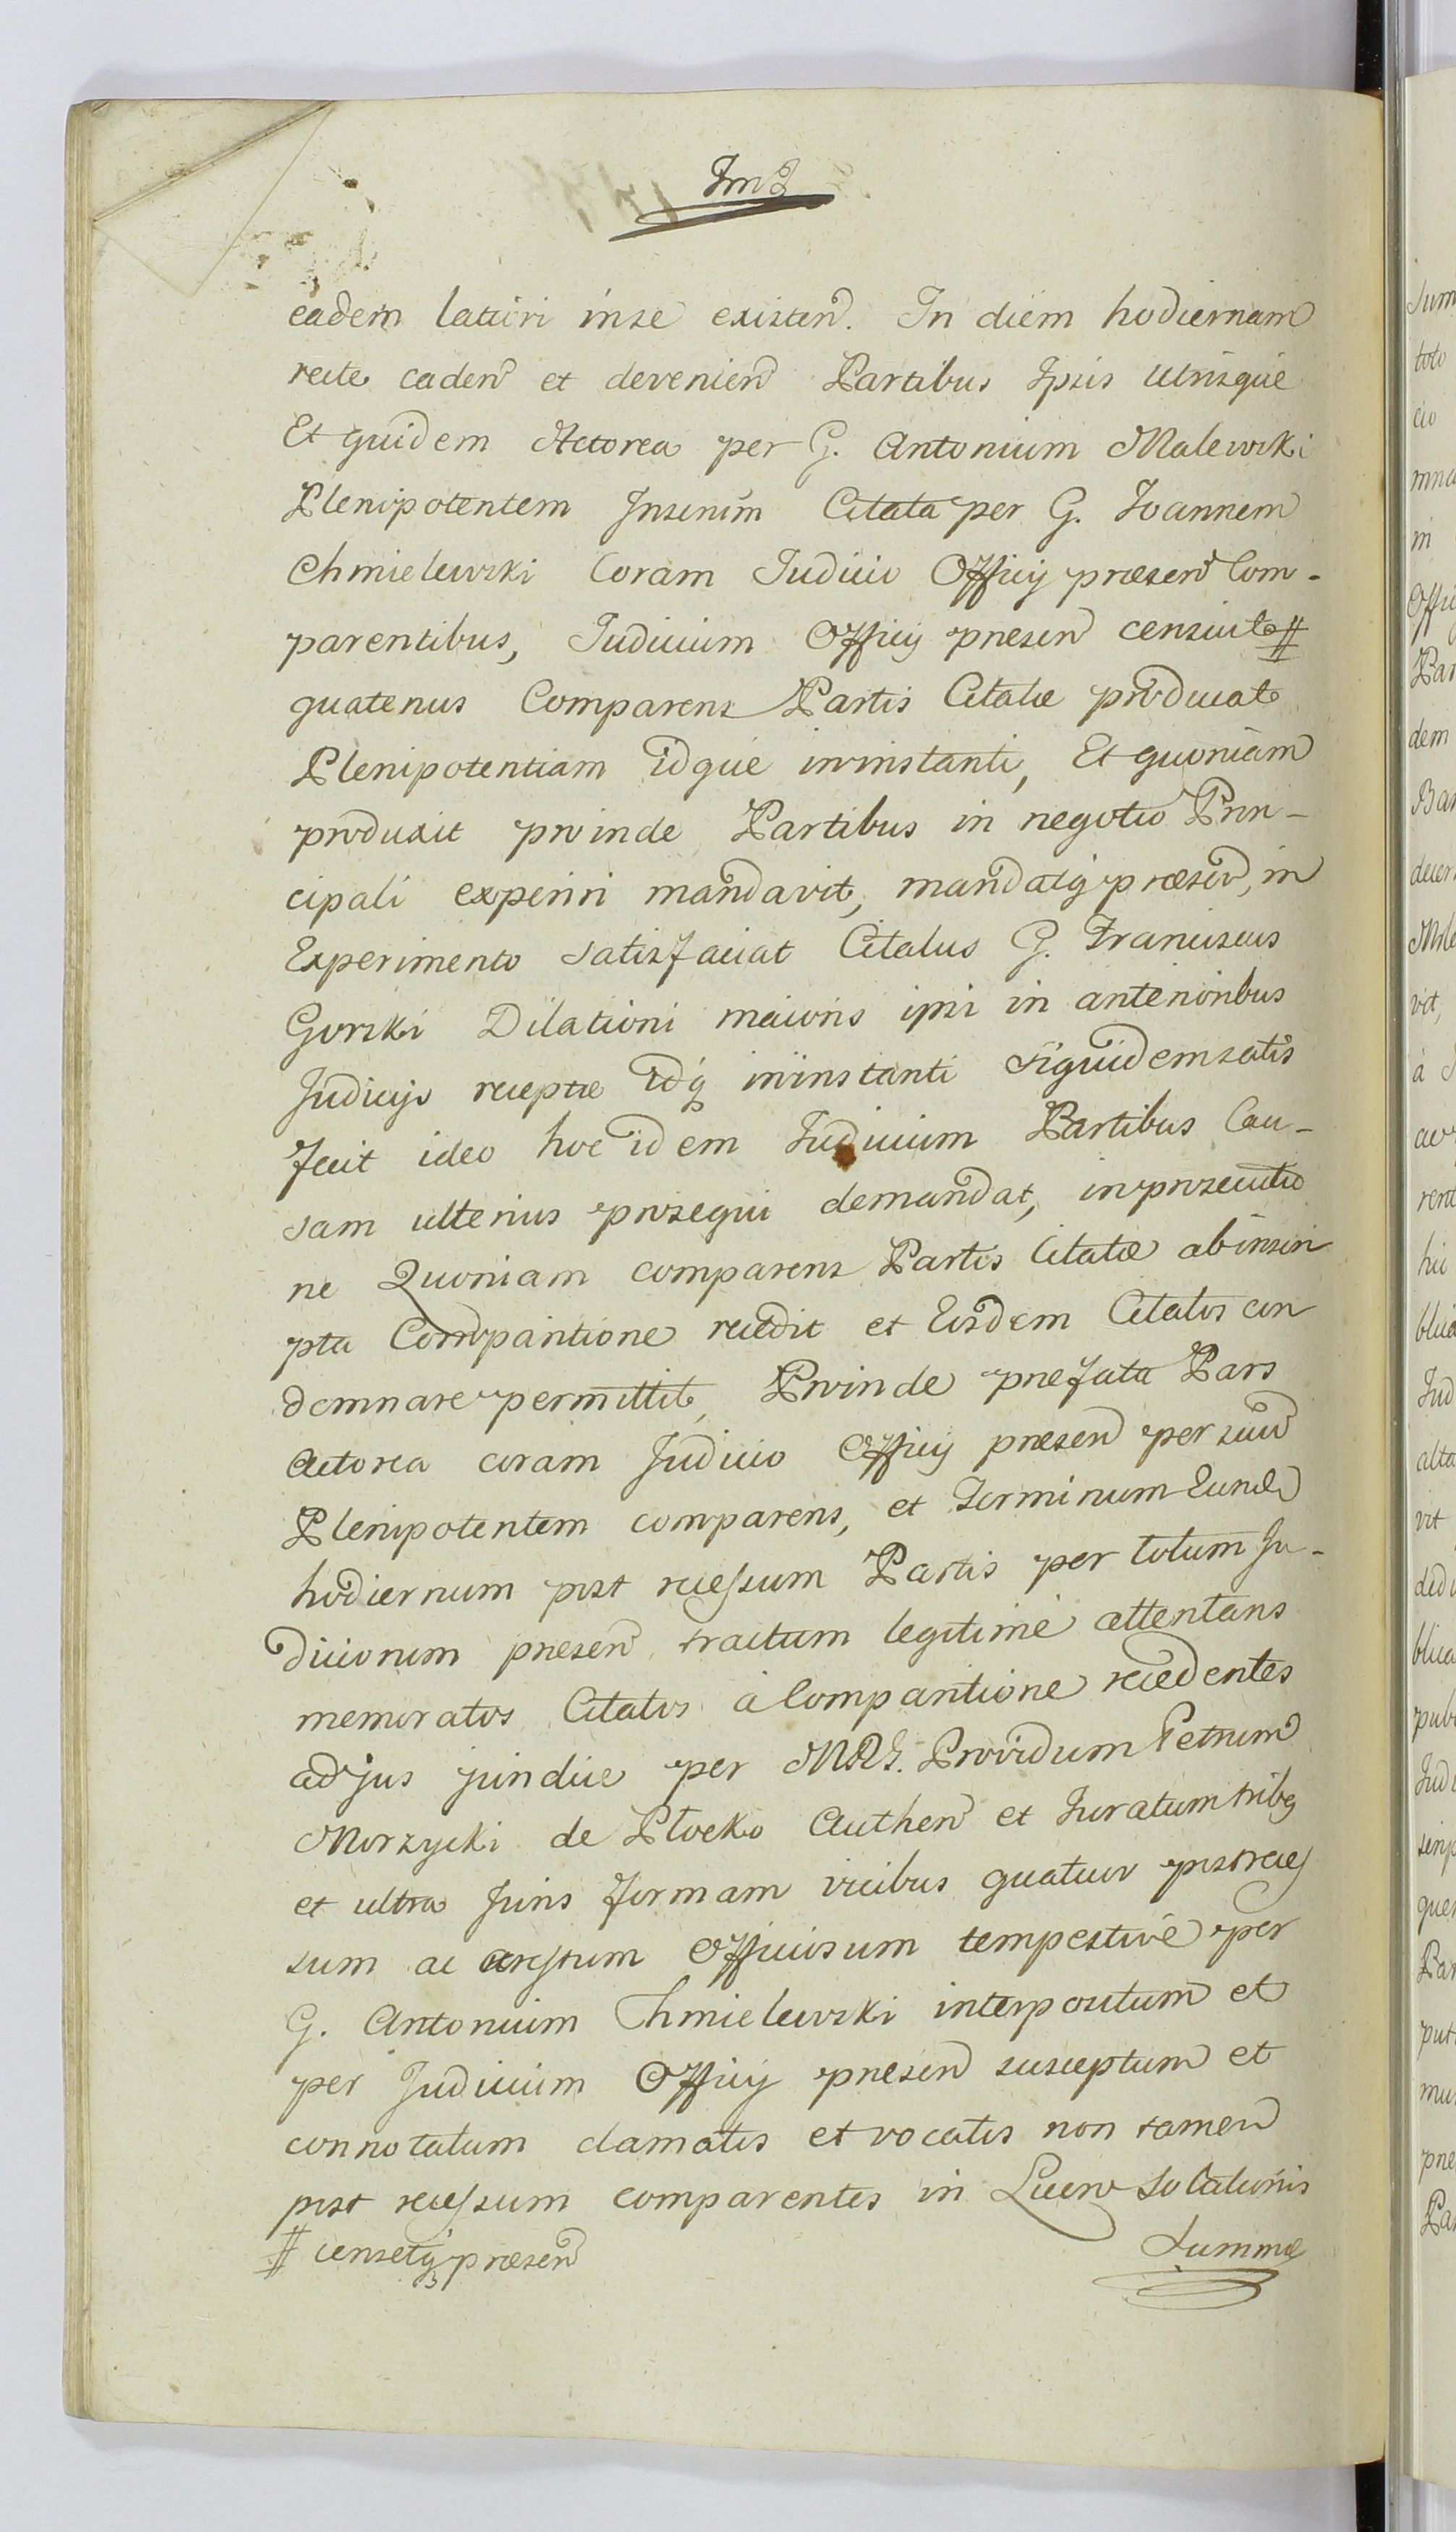 eadem latiuri inse existen. In diem hodiernam
recte caden et devenien Partibus Ipsis Utrisque
Et quidem Actorea per G. Antonium Malewski
Plenipotentem Inserum Citata per G. Joannem
Chmielewski Coram Judicio Officij præsen Com-
parentibus, Judicium Officij præsen censuit #
quatenus Comparens Partis Citatæ producat
Plenipotentiam idque in instanti, Et quoniam
produxit proinde Partibus in negotio Prin-
cipali experiri mandavit, mandatq præsen, in
Experimento satisfaciat Citatus G. Franciscus
Gorski Dilationi maioris ipsi in anterioribus
Judicijs receptæ idq in instanti siquidem satis
fecit ideo hoc idem Judicium Partibus Cau-
sam ulterius prosequi demandat, in prosecutio
ne Quoniam comparens Partis Citatæ ab inscri
pta Comparitione recedit et Eosdem Citatos con
demnare permittit, Proinde præfata Pars
Actorea coram Judicio Officij præsen per suum
Plenipotentem comparens, et Terminum Eund
hodiernum post recessum Partis per totum Ju-
diciorum præsen tractum legitime attentans
memoratos Citatos à Comparitione recedentes
ad jus juridice per MRG. Providum Petrum
Morzycki de Płocko Authen et Juratum tribq
et ultra Juris formam vicibus quatuor post reces
sum ac arestum Officiosum tempestivè per
G. Antonium Chmielewski interpositum et
per Judicium Officij præsen susceptum et
connotatum clamatos et vocatos non tamen
post recessum comparentes in Lucro Solutionis
# censetq præsen
Summæ